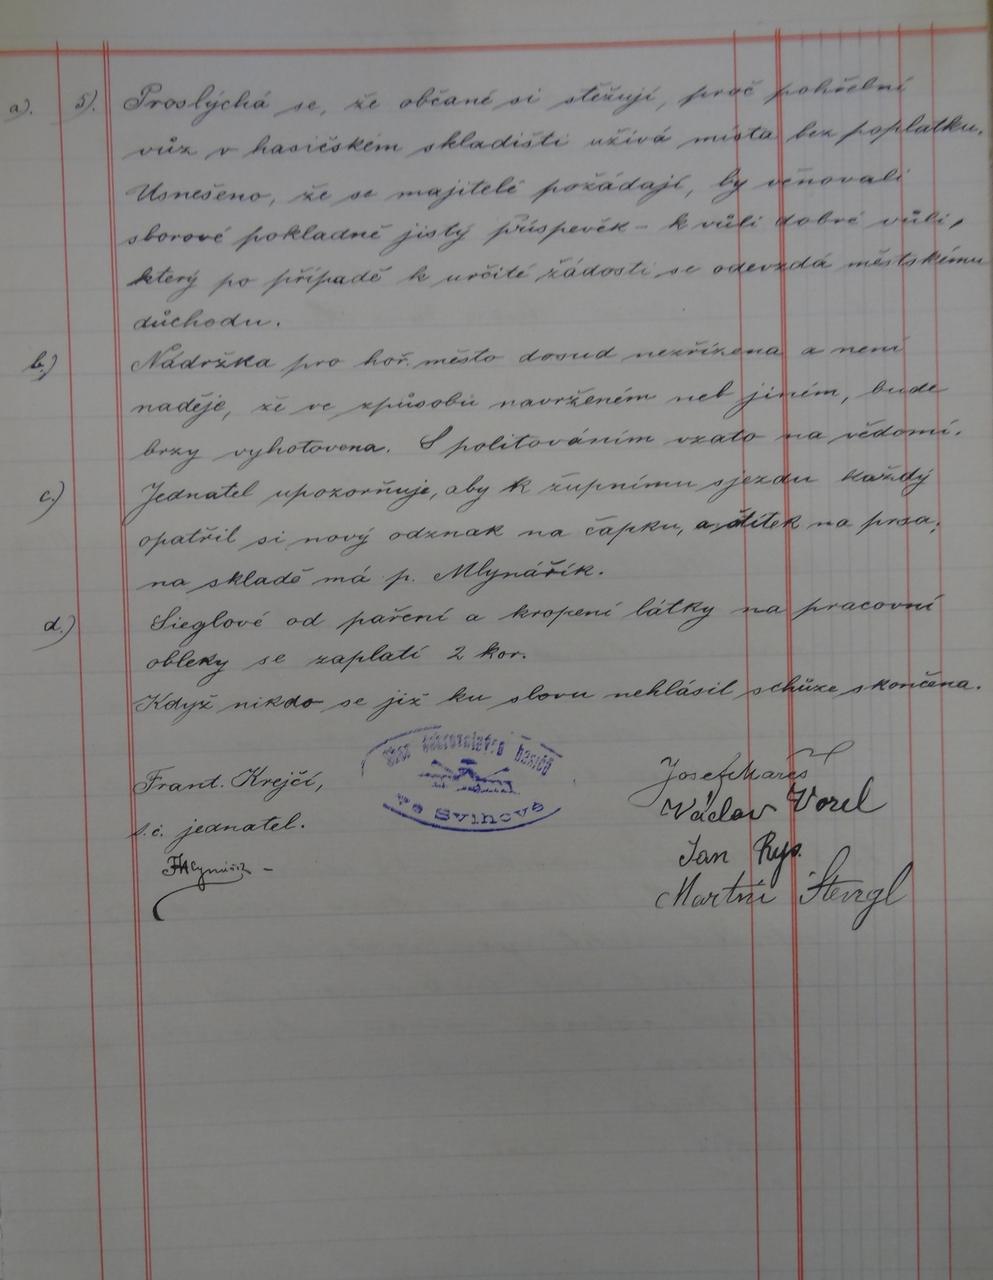 a). 5). Proslýchá se, že občané si stěžují, proč pohřební
vůz v hasičském skladišti užívá místa bez poplatku.
Usnešeno, že se majitelé požádají, by věnovali
sborové pokladně jistý příspěvěk - k vůli dobré vůli,
který po případě k určité žádosti se odevzdá městskému
důchodu.
b.) Nádržka pro hoř. město dosud nezřízena a není
naděje, že ve způsobu navrženém neb jiném, bude
brzy vyhotovena. S politováním vzato na vědomí.
c.) Jednatel upozorňuje, aby k župnímu sjezdu každý
opatřil si nový odznak na čapku, a štítek na prsa,
na skladě má p. Mlynářík.
d.) Sieglové od paření a kropení látky na pracovní
obleky se zaplatí 2 kor.
Když nikdo se již ku slovu nehlásil schůze skončena.
Frant. Krejčí,
t. č. jednatel.
Sbor dobrovolných hasičů
ve Švihově
Josef Mareš
Václav Vorel
Jan Rys.
Martin